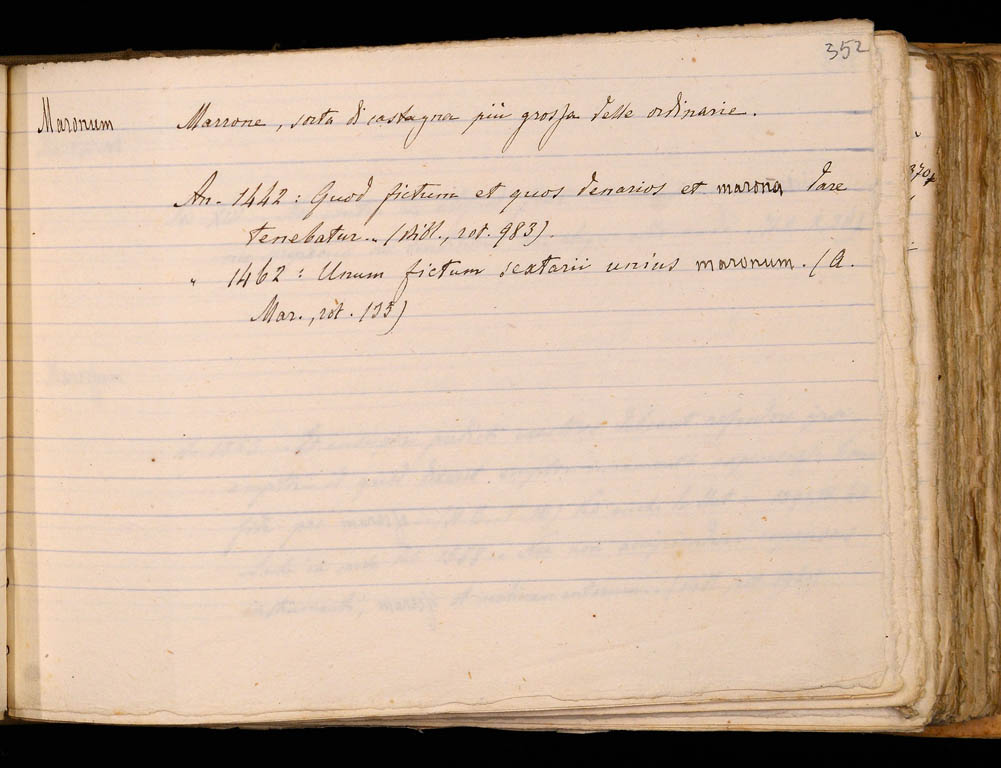 352
Maronum Marrone, sorta di castagna più grossa delle ordinarie.
An. 1442: Quod fictum et quos denarios et marona dare
tenebatur.. (Bibl., rot. 983).
" 1462: Unum fictum sextarii unius maronum. (A.
Mar., rot. 133)
370